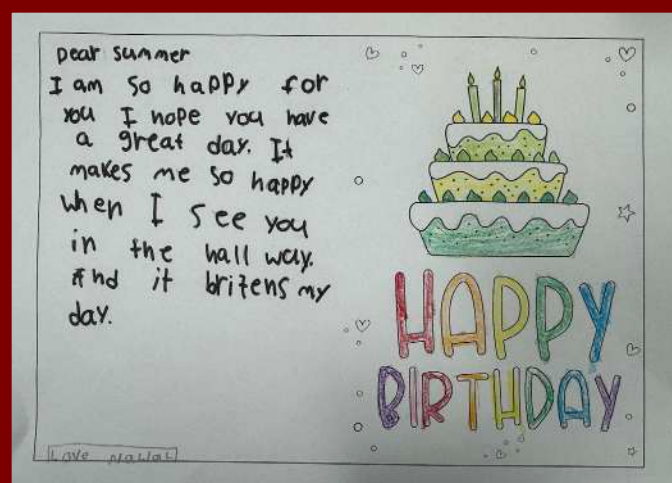 Dear summer
I am so happy for
you I hope you have
a great day. It
makes me so happy
when I see you
in the hall way.
And it britens my
day.
Love Nawal
HAPPY
BIRTHDAY